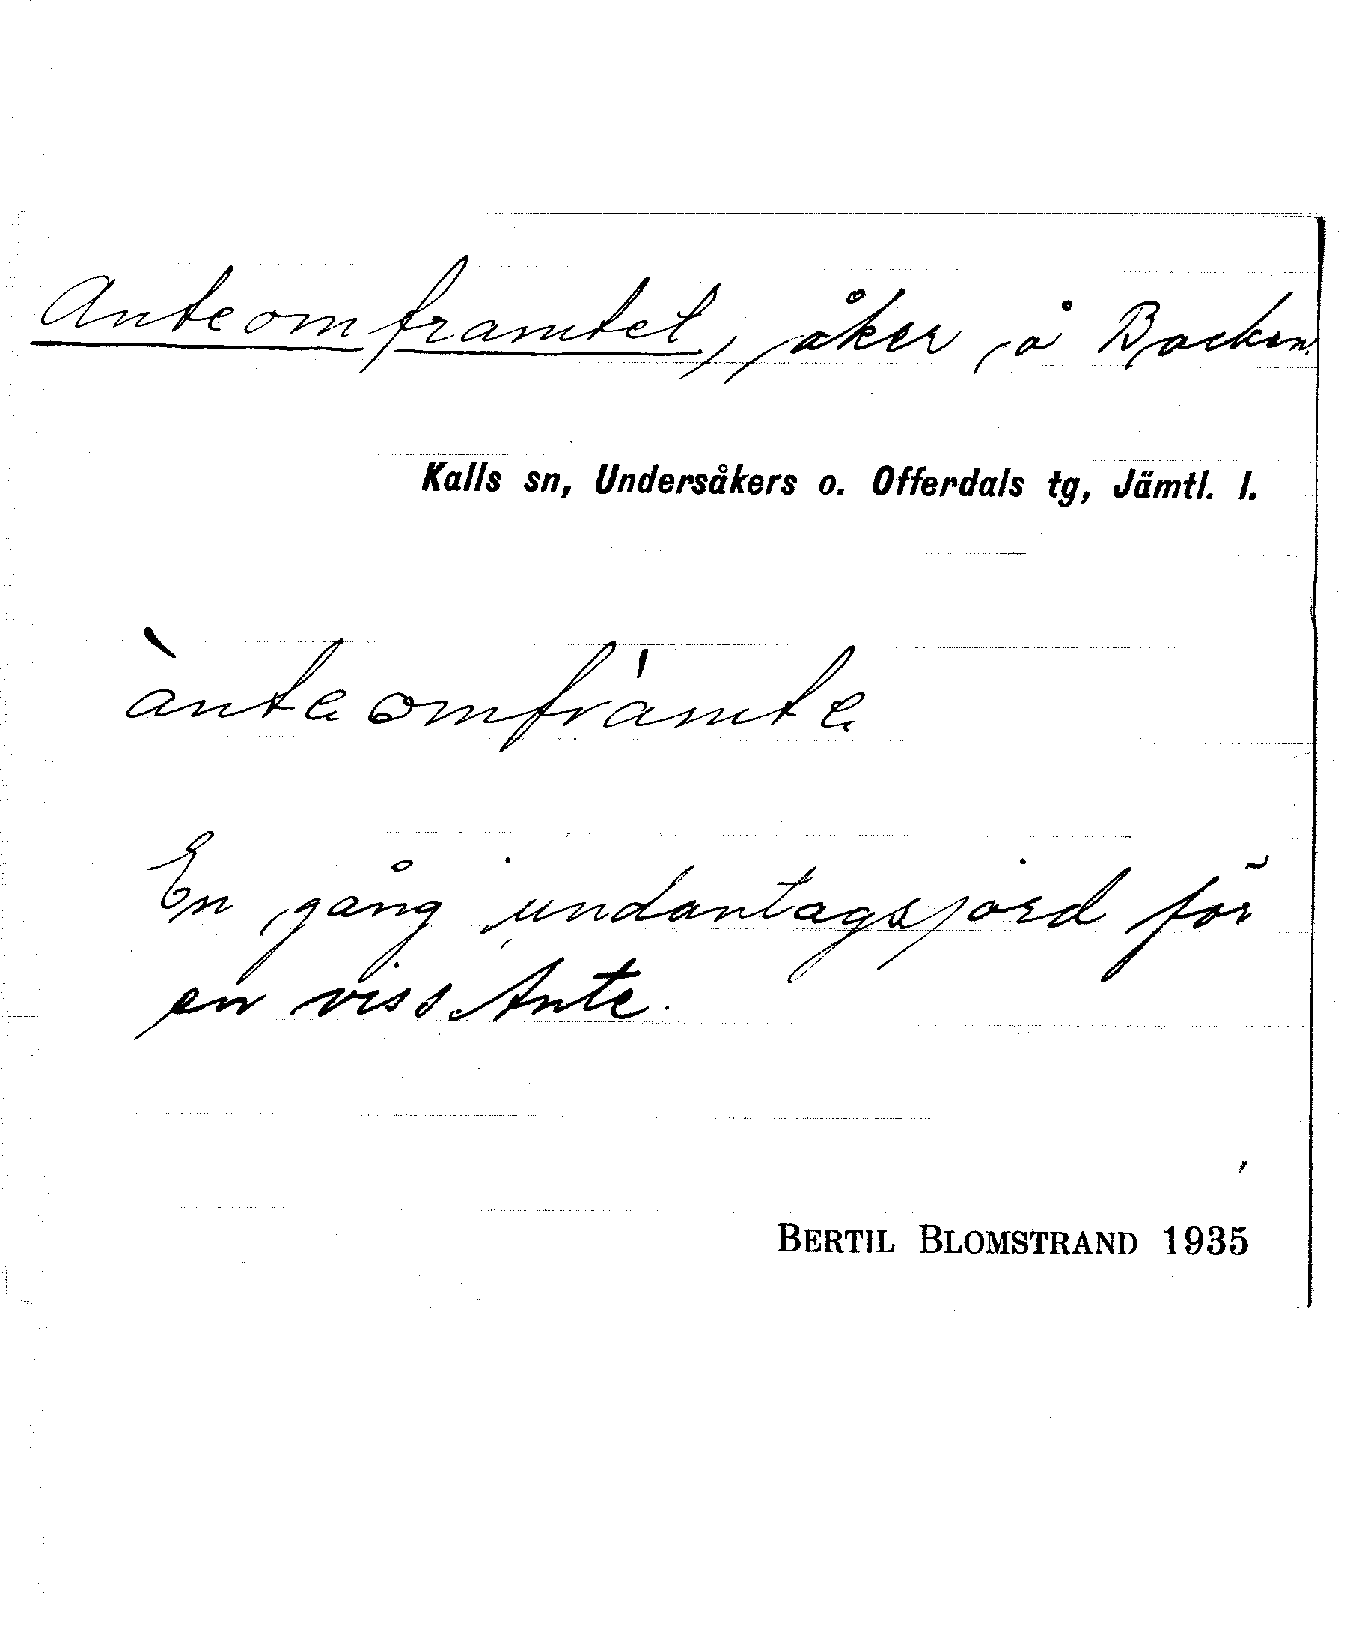 Anteomframtet, åker å Backen.
Kalls sn, Undersåkers o. Offerdals tg, Jämtl. l.
ànteomfràmte
En gång undantagsjord för
en viss Ante.
BERTIL BLOMSTRAND 1935